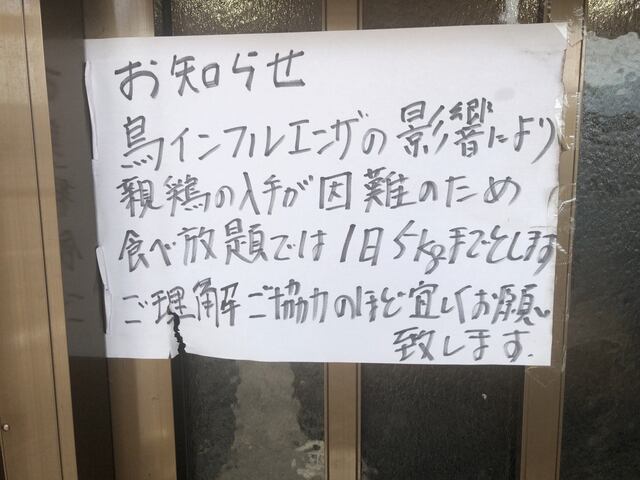 お知らせ
鳥インフルエンザの影響により
親鶏の入手が因難のため
食べ放題では1日5kgまでとします
ご理解ご協力のほど宜しくお願い
致します.